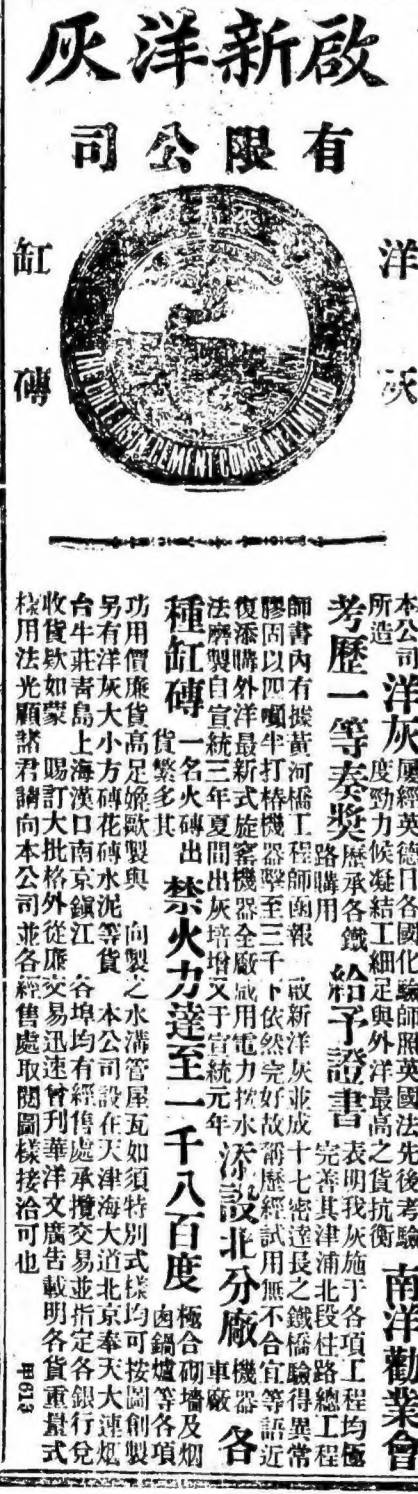 啟新洋灰
有限公司
洋灰
缸磚
THE CHEE HSIN CEMENT COMPANY LIMITED
本公司所造洋灰屢經英德日各國化驗師照英國法先後考驗度勁力候凝結工細足與外洋最高之貨抗衡南洋勸業會
考歷一等奏獎歷承各鐵路購用給予證書表明我灰施于各項工程均極完善其津浦北段柱路總工程
師書內有據黃河橋工程師函報啟新洋灰並成十七密達長之鐵橋驗得異常
膠固以四噸半打樁機器擊至三千下依然完好故稱歷經試用無不合宜等語近
復添購外洋最新式旋窰機器全廠咸用電力按水
法磨製自宣統三年夏間出灰培增又于宣統元年添設北分廠機器車廠各
種缸磚一名火磚出貨繁多其禁火力達至一千八百度極合砌墻及烟囱鍋爐等各項
功用價廉貨高足媲歐製與向製之水溝管屋瓦如須特別式樣均可按圖創製
另有洋灰大小方磚花磚水泥等貨本公司設在天津海大道北京奉天大連烟
台牛莊青島上海漢口南京鎮江各埠均有經售處承攬交易並指定各銀行兌
收貨欵如蒙賜訂大批格外從廉交易迅速曾刊華洋文廣告載明各貨重量式
樣用法光顧諸君請向本公司並各經售處取閱圖樣接洽可也
甲613